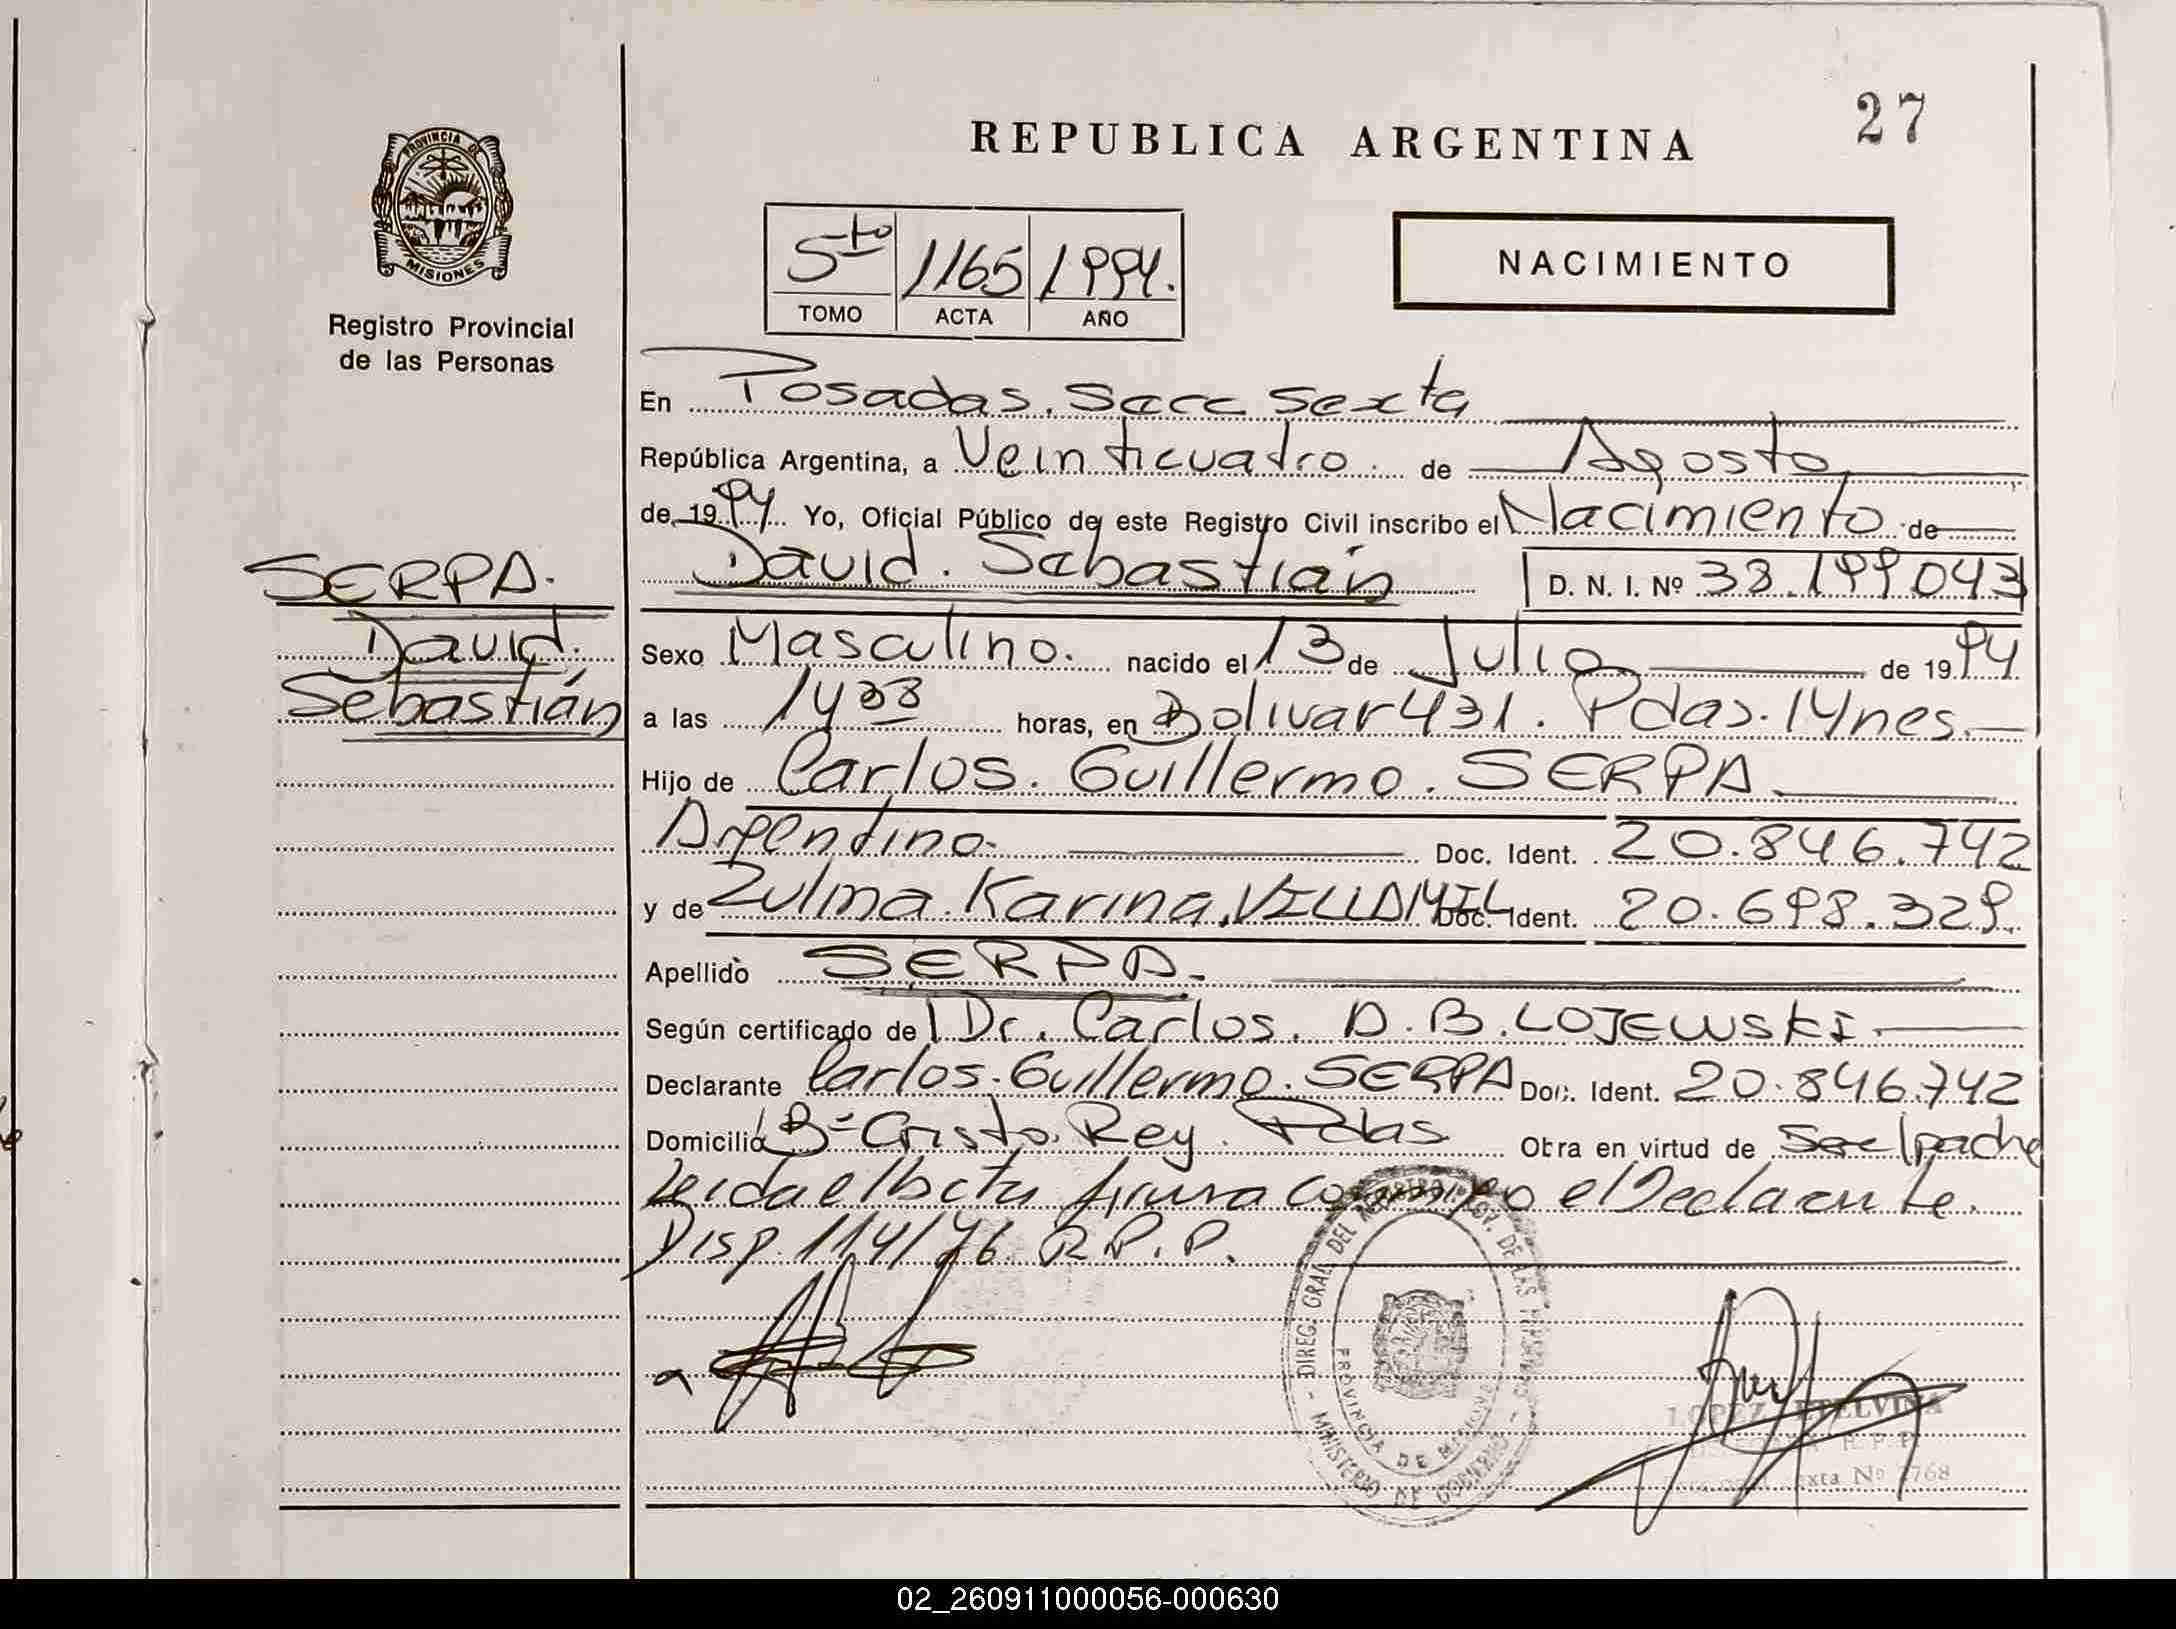 27
REPUBLICA ARGENTINA
PROVINCIA DE
MISIONES
Registro Provincial
de las Personas
5to 1165 1994.
TOMO ACTA AÑO
NACIMIENTO
En Posadas. Secc Sexta
República Argentina, a Veinticuatro de Agosto
de 1994 Yo, Oficial Público de este Registro Civil inscribo el Nacimiento de
David. Sebastián D. N. I. Nº 38.199.043
SERPA.
David.
Sebastián
Sexo Masculino. nacido el 13 de Julio de 1994
a las 14 38 horas, en Bolivar 431. Pdas. Mnes.
Hijo de Carlos. Guillermo. SERPA.
Argentino. Doc. Ident. 20.846.742
y de Zulma. Karina. VILLAMIL Doc. Ident. 20.698.329.
Apellido SERPA.
Según certificado de Dr. Carlos. A. B. LOJEWSKI.
Declarante Carlos. Guillermo. SERPA Doc. Ident. 20.846.742
Domicilio Bº Cristo Rey. Pdas Obra en virtud de Ser el padre
Leida el Acta firma conmigo el Declarante.
Disp. 114/76. R.P.P.
DIREG. GRAL. DEL REGISTRO PROV. DE LAS PERSONAS
PROVINCIA DE MISIONES
MINISTERIO DE GOBIERNO
LOPEZ ETELVINA
R. P. P.
Sexta Nº 2768
02_260911000056-000630